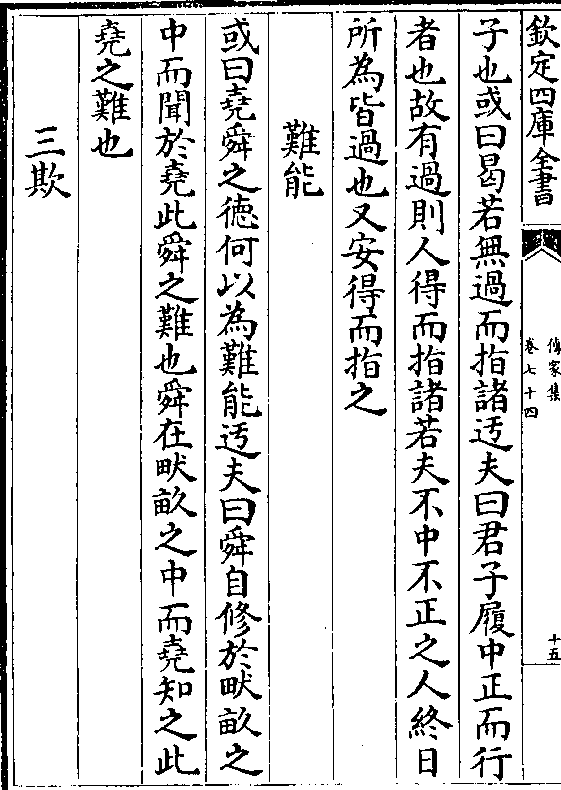 欽定四庫全書
傳家集
卷七十四
十五
子也或曰曷若無過而指諸迃夫曰君子履中正而行
者也故有過則人得而指諸若夫不中不正之人終日
所為皆過也又安得而指之
難能
或曰堯舜之德何以為難能迃夫曰舜自修於畎畝之
中而聞於堯此舜之難也舜在畎畝之中而堯知之此
堯之難也
三欺